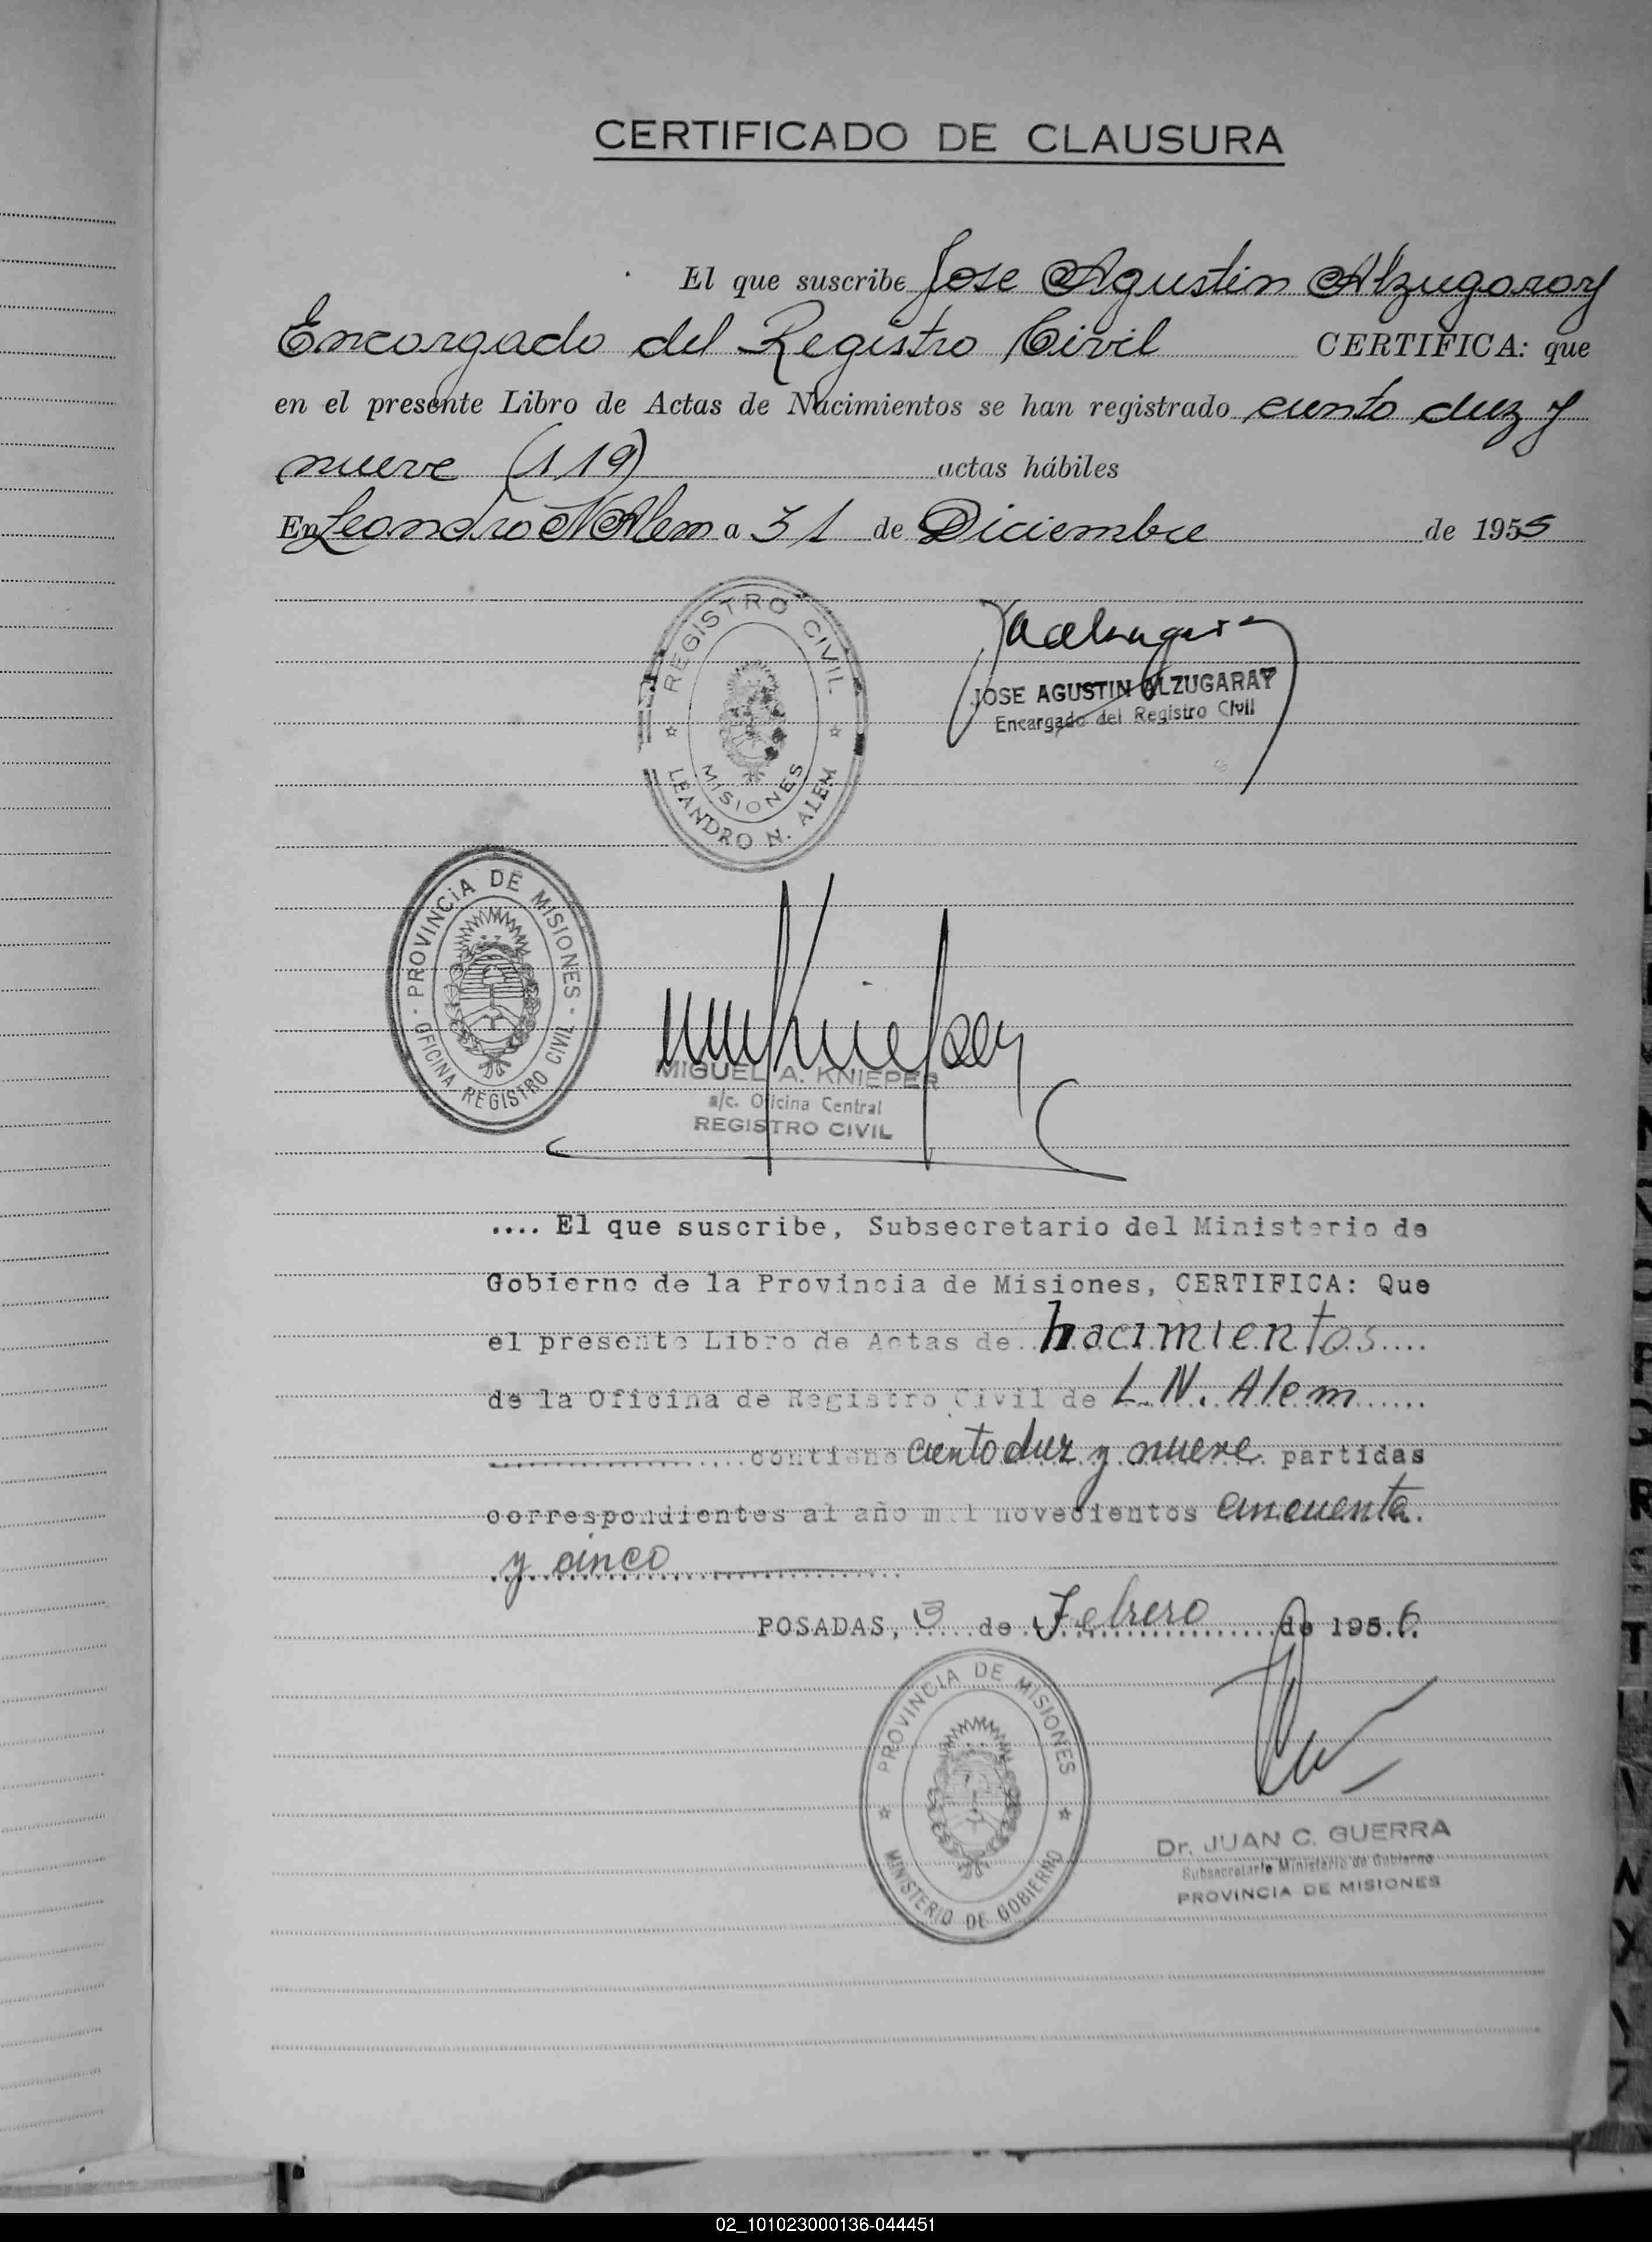 CERTIFICADO DE CLAUSURA
El que suscribe Jose Agustin Alzugaray
Encargado del Registro Civil CERTIFICA: que
en el presente Libro de Actas de Nacimientos se han registrado ciento diez y
nueve (119) actas hábiles
En Leandro N Alem a 31 de Diciembre de 1955
REGISTRO CIVIL
MISIONES
LEANDRO N. ALEM
JOSE AGUSTIN ALZUGARAY
Encargado del Registro Civil
PROVINCIA DE MISIONES
OFICINA REGISTRO CIVIL
MIGUEL A. KNIEPER
a/c. Oficina Central
REGISTRO CIVIL
.... El que suscribe, Subsecretario del Ministerio de
Gobierno de la Provincia de Misiones, CERTIFICA: Que
el presente Libro de Actas de nacimientos
de la Oficina de Registro Civil de L. N. Alem
contiene ciento diez y nueve partidas
correspondientes al año mil novecientos cincuenta
y cinco
POSADAS, 3 de Febrero de 1956.
PROVINCIA DE MISIONES
MINISTERIO DE GOBIERNO
Dr. JUAN C. GUERRA
Subsecretario Ministerio de Gobierno
PROVINCIA DE MISIONES
02_101023000136-044451